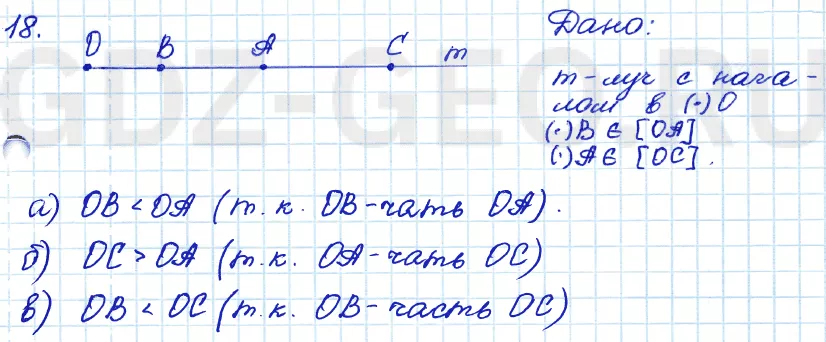 18.
O B A C m
Дано:
m-луч с нача-
лом в (·) O
(·) B ∈ [OA]
(·) A ∈ [OC].
GDZ-GEO.RU
а) OB < OA (т.к. OB-чать OA).
б) OC > OA (т.к. OA-чать OC)
в) OB < OC (т.к. OB-часть OC)